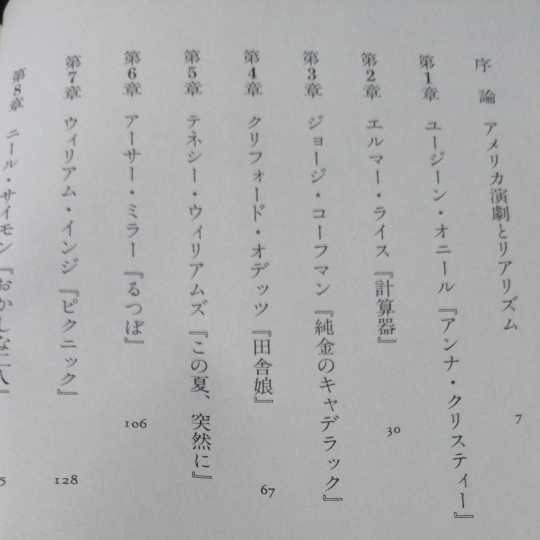 序論 アメリカ演劇とリアリズム 7
第1章 ユージーン・オニール『アンナ・クリスティー』
第2章 エルマー・ライス『計算器』 30
第3章 ジョージ・コーフマン『純金のキャデラック』
第4章 クリフォード・オデッツ『田舎娘』 67
第5章 テネシー・ウィリアムズ『この夏、突然に』
第6章 アーサー・ミラー『るつぼ』 106
第7章 ウィリアム・インジ『ピクニック』 128
第8章 ニール・サイモン『おかしな二人』